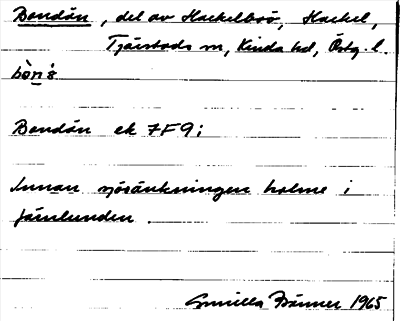 Bondön, del av Hackelboö, Hackel,
Tjärstads sn, Kinda hd, Östg. l.
Bondön ek 7F9i
Innan sjösänkningen holme i
Järnlunden.
Gunilla Fränner 1965